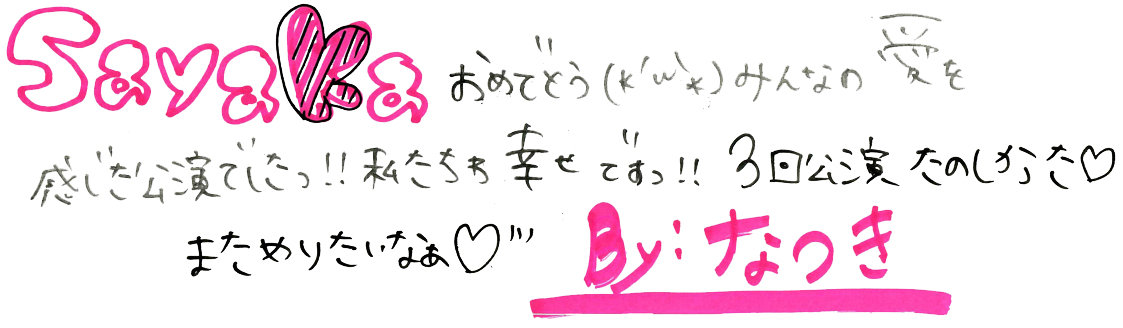 Sayaka おめでとう(*´ω`*)みんなの愛を
感じた公演でしたっ!!私たちも幸せですっ!!3回公演たのしかった♡
またやりたいなぁ♡
By:なつき